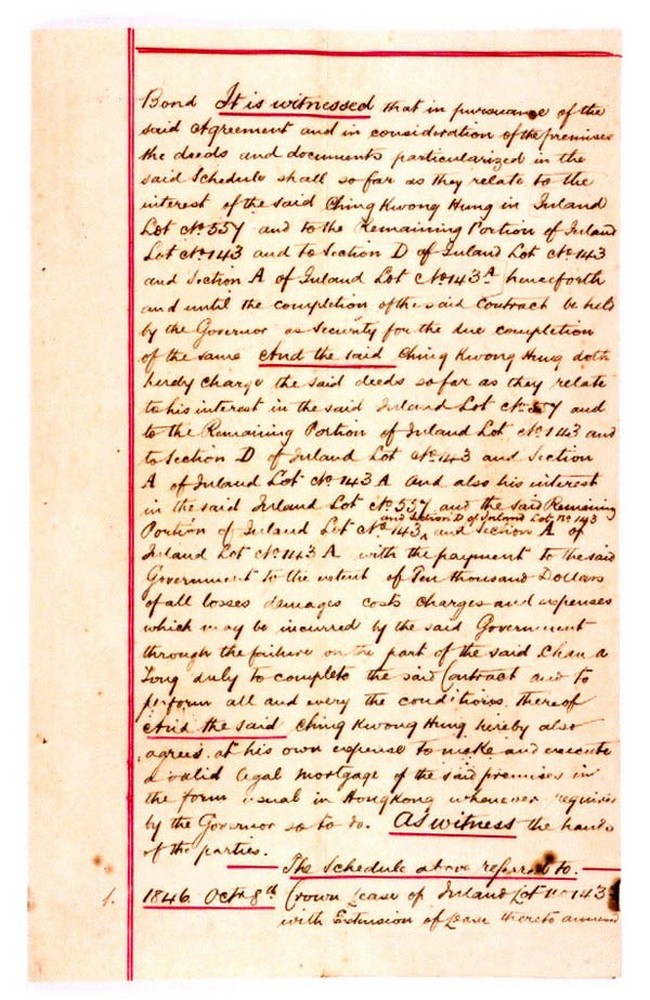 Bond It is witnessed that in pursuance of the
said Agreement and in consideration of the premises
the deeds and documents particularized in the
said Schedule shall so far as they relate to the
interest of the said Ching Kwong Hung in Inland
Lot No. 557 and to the Remaining Portion of Inland
Lot No. 143 and to Section D of Inland Lot No. 143
and Section A of Inland Lot No. 143A henceforth
and until the completion of the said Contract be held
by the Governor as Security for the due completion
of the same And the said Ching Kwong Hung doth
hereby charge the said deeds so far as they relate
to his interest in the said Inland Lot No. 557 and
to the Remaining Portion of Inland Lot No. 143 and
to Section D of Inland Lot No. 143 and Section
A of Inland Lot No. 143 A and also his interest
in the said Inland Lot No. 557 and the said Remaining
and Section D of Inland Lot No. 143
Portion of Inland Lot No. 143 ^ and Section A of
Inland Lot No. 143 A with the payment to the said
Government to the extent of Ten thousand Dollars
of all losses damages costs charges and expenses
which may be incurred by the said Government
through the failure on the part of the said Chan a
Tong duly to complete the said Contract and to
perform all and every the conditions thereof
And the said Ching Kwong Hung hereby also
agrees at his own expense to make and execute
a valid legal mortgage of the said premises in
the form usual in Hongkong whenever required
by the Governor so to do. As witness the hands
of the parties.
The Schedule above referred to.
1. 1846 Octr. 8th Crown Lease of Inland Lot No 143
with Extension of Lease thereto annexed